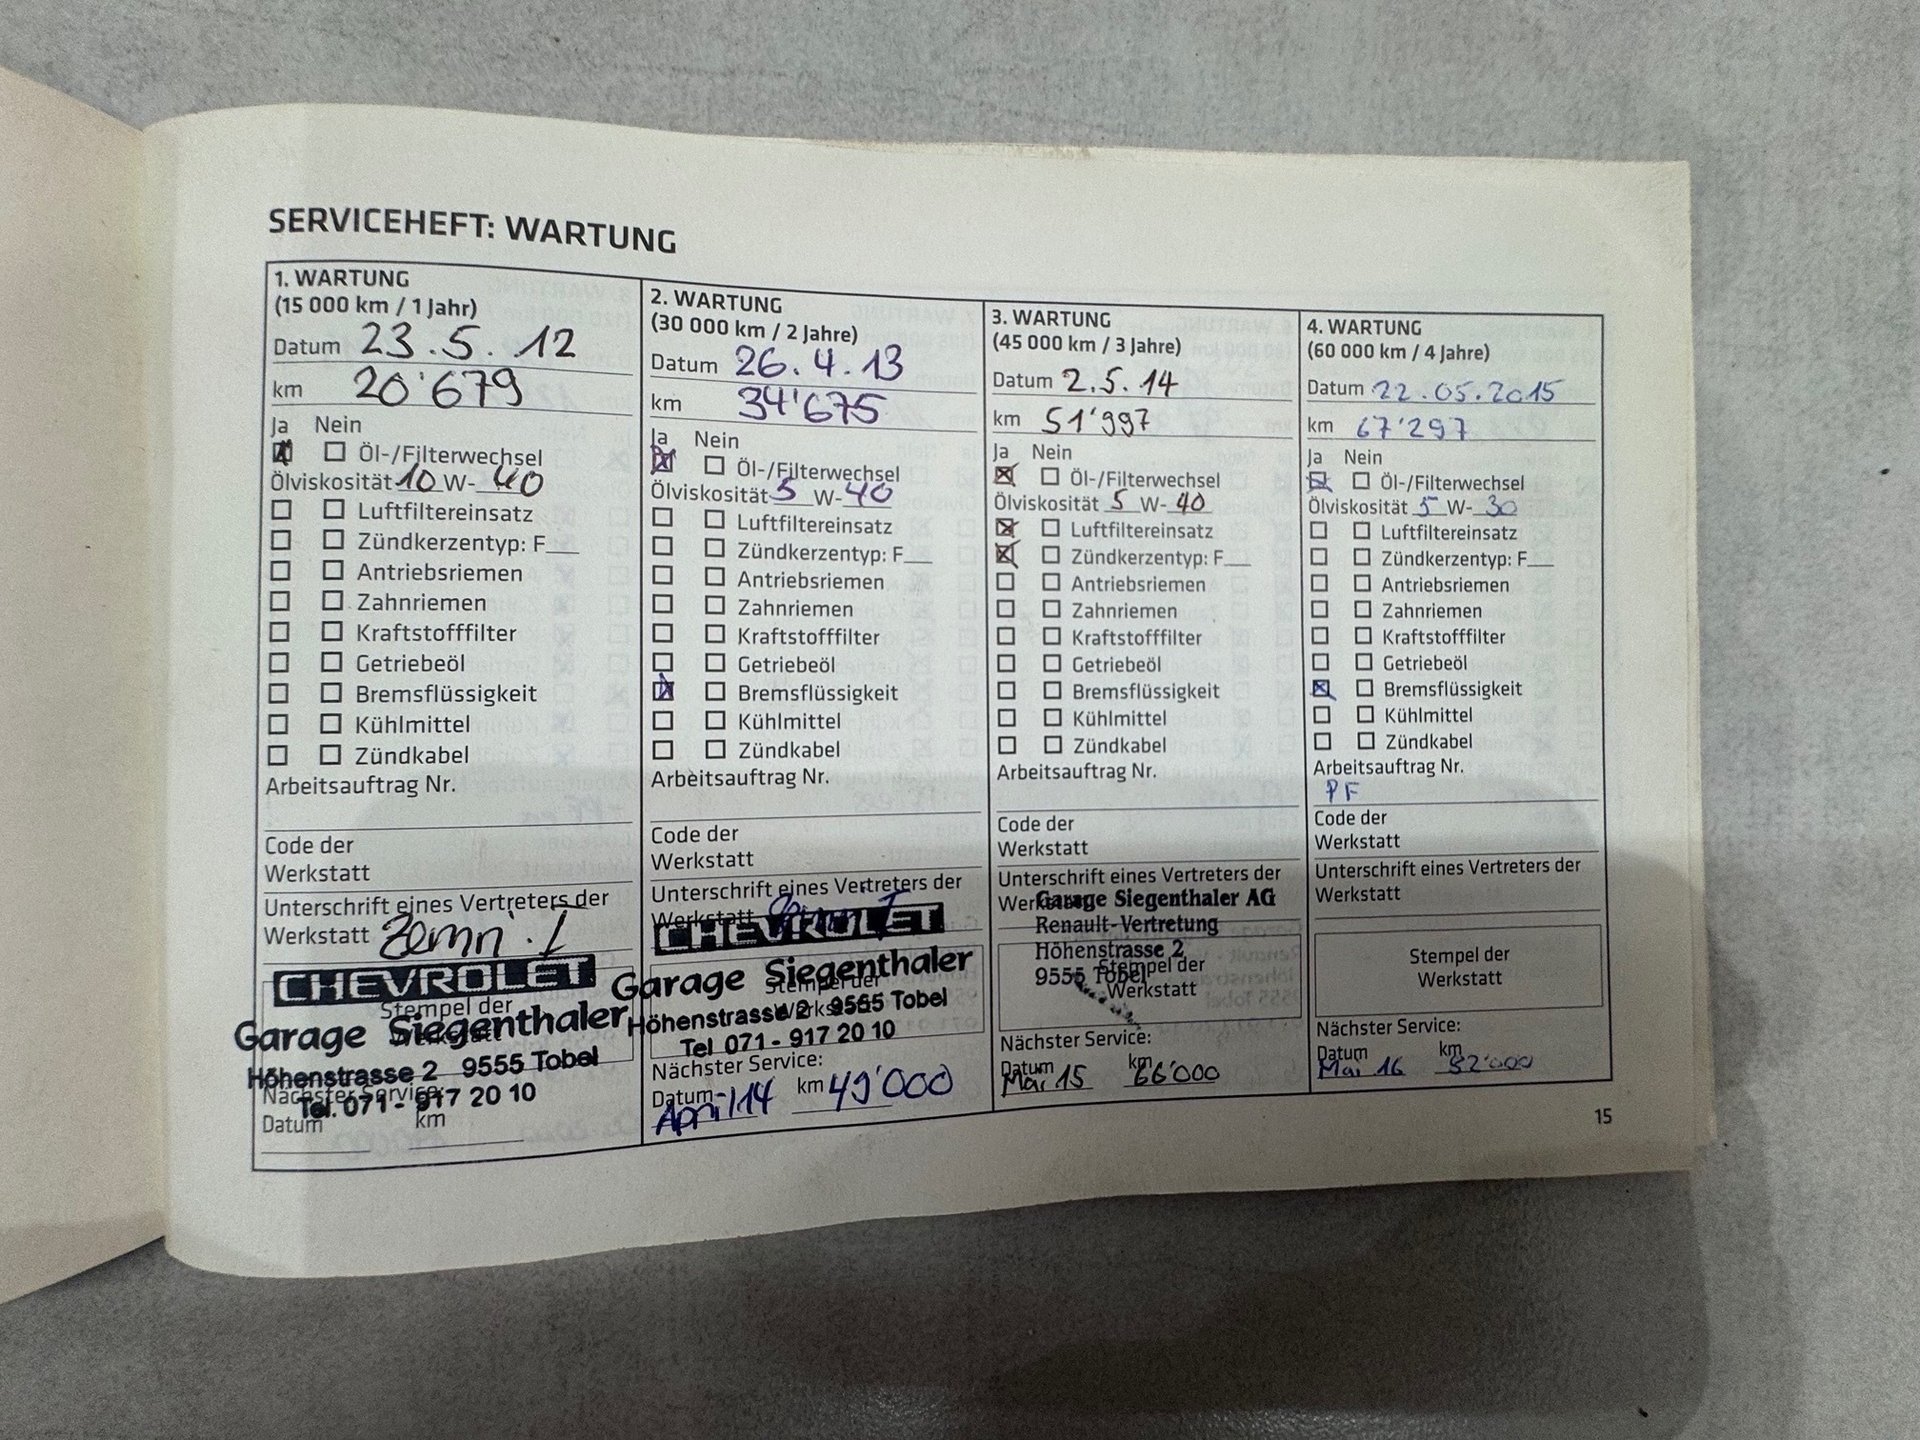 SERVICEHEFT: WARTUNG
1. WARTUNG
(15 000 km / 1 Jahr)
Datum 23.5.12
km 20'679
Ja Nein
Öl-/Filterwechsel
Ölviskosität 10 W- 40
Luftfiltereinsatz
Zündkerzentyp: F__
Antriebsriemen
Zahnriemen
Kraftstofffilter
Getriebeöl
Bremsflüssigkeit
Kühlmittel
Zündkabel
Arbeitsauftrag Nr.
Code der
Werkstatt
Unterschrift eines Vertreters der
Werkstatt
CHEVROLET
Stempel der
Garage Siegenthaler
Werkstatt
Höhenstrasse 2 9555 Tobel
Nächster Service:
Tel. 071 - 917 20 10
Datum km
2. WARTUNG
(30 000 km / 2 Jahre)
Datum 26.4.13
km 34'675
Ja Nein
Öl-/Filterwechsel
Ölviskosität 5 W- 40
Luftfiltereinsatz
Zündkerzentyp: F__
Antriebsriemen
Zahnriemen
Kraftstofffilter
Getriebeöl
Bremsflüssigkeit
Kühlmittel
Zündkabel
Arbeitsauftrag Nr.
Code der
Werkstatt
Unterschrift eines Vertreters der
Werkstatt
CHEVROLET
Garage Siegenthaler
Stempel der
Höhenstrasse 2 9555 Tobel
Werkstatt
Tel 071 - 917 20 10
Nächster Service:
Datum km 49'000
April 14
3. WARTUNG
(45 000 km / 3 Jahre)
Datum 2.5.14
km 51'997
Ja Nein
Öl-/Filterwechsel
Ölviskosität 5 W- 40
Luftfiltereinsatz
Zündkerzentyp: F__
Antriebsriemen
Zahnriemen
Kraftstofffilter
Getriebeöl
Bremsflüssigkeit
Kühlmittel
Zündkabel
Arbeitsauftrag Nr.
Code der
Werkstatt
Unterschrift eines Vertreters der
Werkstatt
Garage Siegenthaler AG
Renault-Vertretung
Höhenstrasse 2
9555 Tobel
Stempel der
Werkstatt
Nächster Service:
Datum km
Mai 15 66'000
4. WARTUNG
(60 000 km / 4 Jahre)
Datum 22.05.2015
km 67'297
Ja Nein
Öl-/Filterwechsel
Ölviskosität 5 W- 30
Luftfiltereinsatz
Zündkerzentyp: F__
Antriebsriemen
Zahnriemen
Kraftstofffilter
Getriebeöl
Bremsflüssigkeit
Kühlmittel
Zündkabel
Arbeitsauftrag Nr.
PF
Code der
Werkstatt
Unterschrift eines Vertreters der
Werkstatt
Stempel der
Werkstatt
Nächster Service:
Datum km
Mai 16 82'000
15